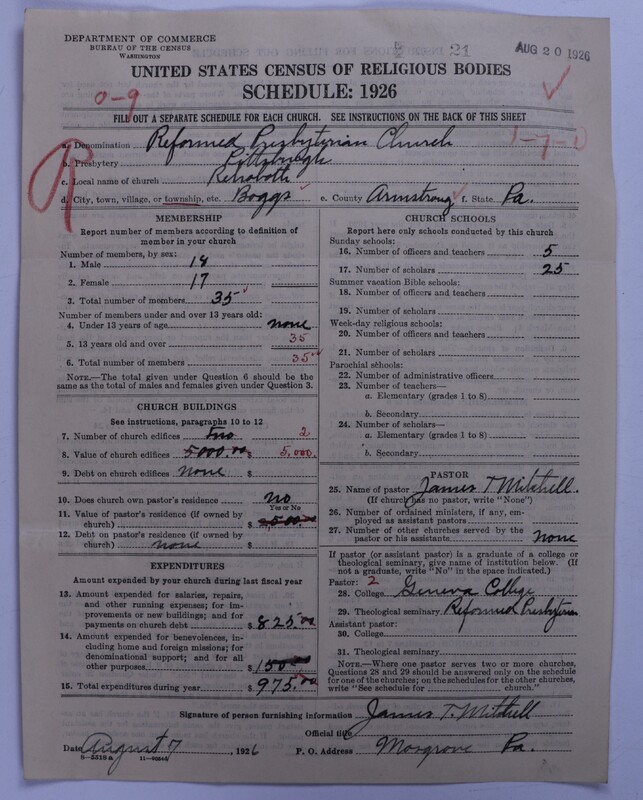 DEPARTMENT OF COMMERCE
BUREAU OF THE CENSUS
WASHINGTON
21
AUG 20 1926
UNITED STATES CENSUS OF RELIGIOUS BODIES
SCHEDULE: 1926
0-9
FILL OUT A SEPARATE SCHEDULE FOR EACH CHURCH. SEE INSTRUCTIONS ON THE BACK OF THIS SHEET
R
a. Denomination Reformed Presbyterian Church
b. Presbytery Pittsburgh
c. Local name of church Rehoboth
d. City, town, village, or township, etc. Boggs e. County Armstrong f. State Pa.
MEMBERSHIP
Report number of members according to definition of member in your church
Number of members, by sex:
1. Male 18
2. Female 17
3. Total number of members 35
Number of members under and over 13 years old:
4. Under 13 years of age none
5. 13 years old and over 35
6. Total number of members 35
NOTE.—The total given under Question 6 should be the
same as the total of males and females given under Question 3.
CHURCH BUILDINGS
See instructions, paragraphs 10 to 12
7. Number of church edifices Two 2
8. Value of church edifices 5000.00 $ 5,000
9. Debt on church edifices none $
10. Does church own pastor's residence no
Yes or No
11. Value of pastor's residence (if owned by
church) $
12. Debt on pastor's residence (if owned by
church) none $
EXPENDITURES
Amount expended by your church during last fiscal year
13. Amount expended for salaries, repairs,
and other running expenses; for im-
provements or new buildings; and for
payments on church debt $ 825.00
14. Amount expended for benevolences, in-
cluding home and foreign missions; for
denominational support; and for all
other purposes $ 150.00
15. Total expenditures during year $ 975.00
CHURCH SCHOOLS
Report here only schools conducted by this church
Sunday schools:
16. Number of officers and teachers 5
17. Number of scholars 25
Summer vacation Bible schools:
18. Number of officers and teachers
19. Number of scholars
Week-day religious schools:
20. Number of officers and teachers
21. Number of scholars
Parochial schools:
22. Number of administrative officers
23. Number of teachers—
a. Elementary (grades 1 to 8)
b. Secondary
24. Number of scholars—
a. Elementary (grades 1 to 8)
b. Secondary
PASTOR
25. Name of pastor James T. Mitchell.
(If church has no pastor, write "None")
26. Number of ordained ministers, if any, em-
ployed as assistant pastors
27. Number of other churches served by the
pastor or his assistants none
If pastor (or assistant pastor) is a graduate of a college or
theological seminary, give name of institution below. (If
not a graduate, write "No" in the space indicated.)
Pastor: 2
28. College Geneva College
29. Theological seminary Reformed Presbyterian
Assistant pastor:
30. College
31. Theological seminary
NOTE.—Where one pastor serves two or more churches,
Questions 28 and 29 should be answered only on the schedule
for one of the churches; on the schedules for the other churches,
write "See schedule for church."
Signature of person furnishing information James T. Mitchell
Official title
Date August 7, 1926 P. O. Address Mosgrove Pa.
8-5318a